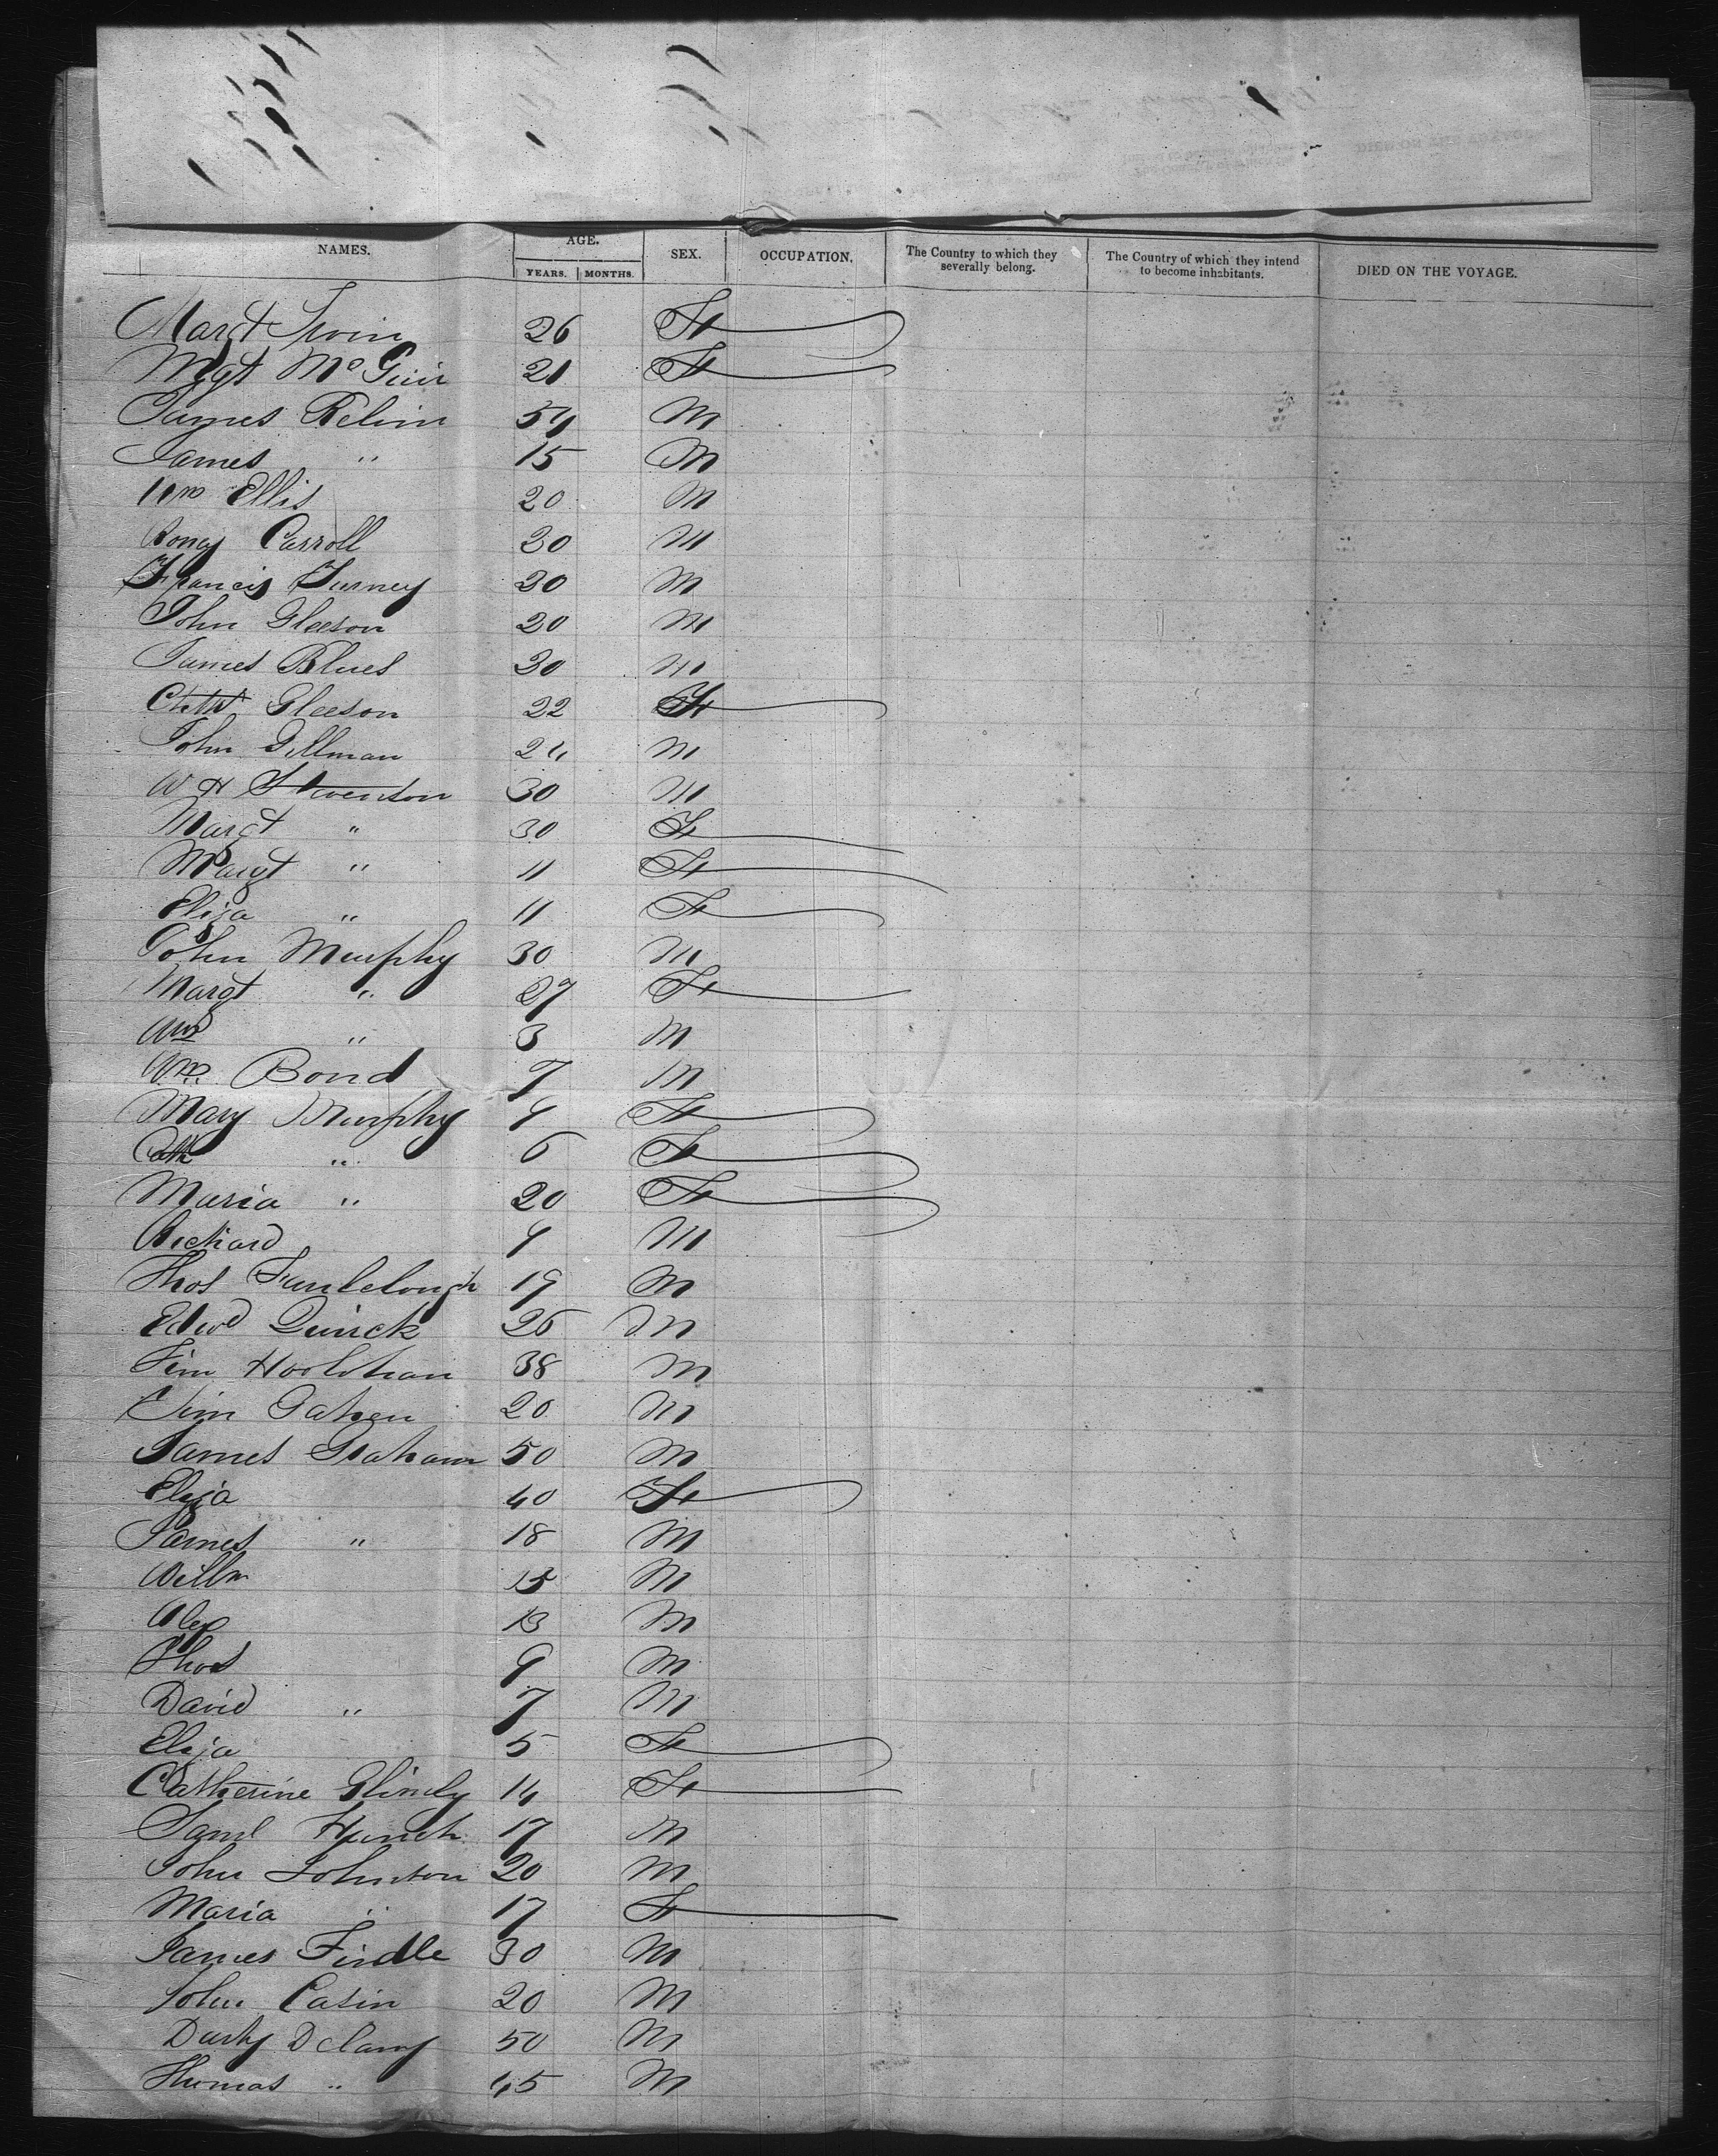 NAMES. AGE. SEX. OCCUPATION. The Country to which they severally belong. The Country of which they intend to become inhabitants. DIED ON THE VOYAGE.
YEARS. MONTHS.
Margt Irvin 26 F
Mgt McGuir 21 F
James 54 M
James " 15 M
Wm Ellis 20 M
Carroll 30 M
Francis Turney 30 M
John Gleeson 20 M
James Blues 30 M
Cath Gleeson 22 F
John Gillman 24 M
W H Stevenson 30 M
Margt " 30 F
Margt " 11 F
Eliza " 11 F
John Murphy 30 M
Margt " 27 F
Wm " 3 M
Wm Bond 7 M
Mary Murphy 9 F
Cath " 6 F
Maria " 20 F
Richard 9 M
Thos 19 M
Edwd Quirck 26 M
Tim 38 M
Tim Gahen 20 M
James Graham 50 M
Eliza 40 F
James " 18 M
Willm 15 M
Alex 13 M
Thos 9 M
David " 7 M
Eliza 5 F
Catherine 14 F
Saml 17 M
John Johnston 20 M
Maria " 17 F
James Findle 30 M
John Casin 20 M
Darby Delany 50 M
Thomas " 45 M